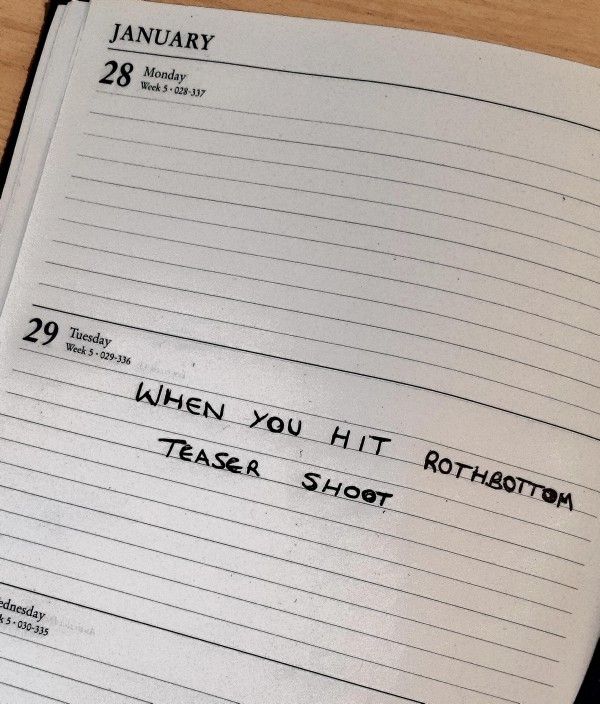 JANUARY
28 Monday
Week 5 · 028-337
29 Tuesday
Week 5 · 029-336
WHEN YOU HIT ROTHBOTTOM
TEASER SHOOT
ednesday
k 5 · 030-335